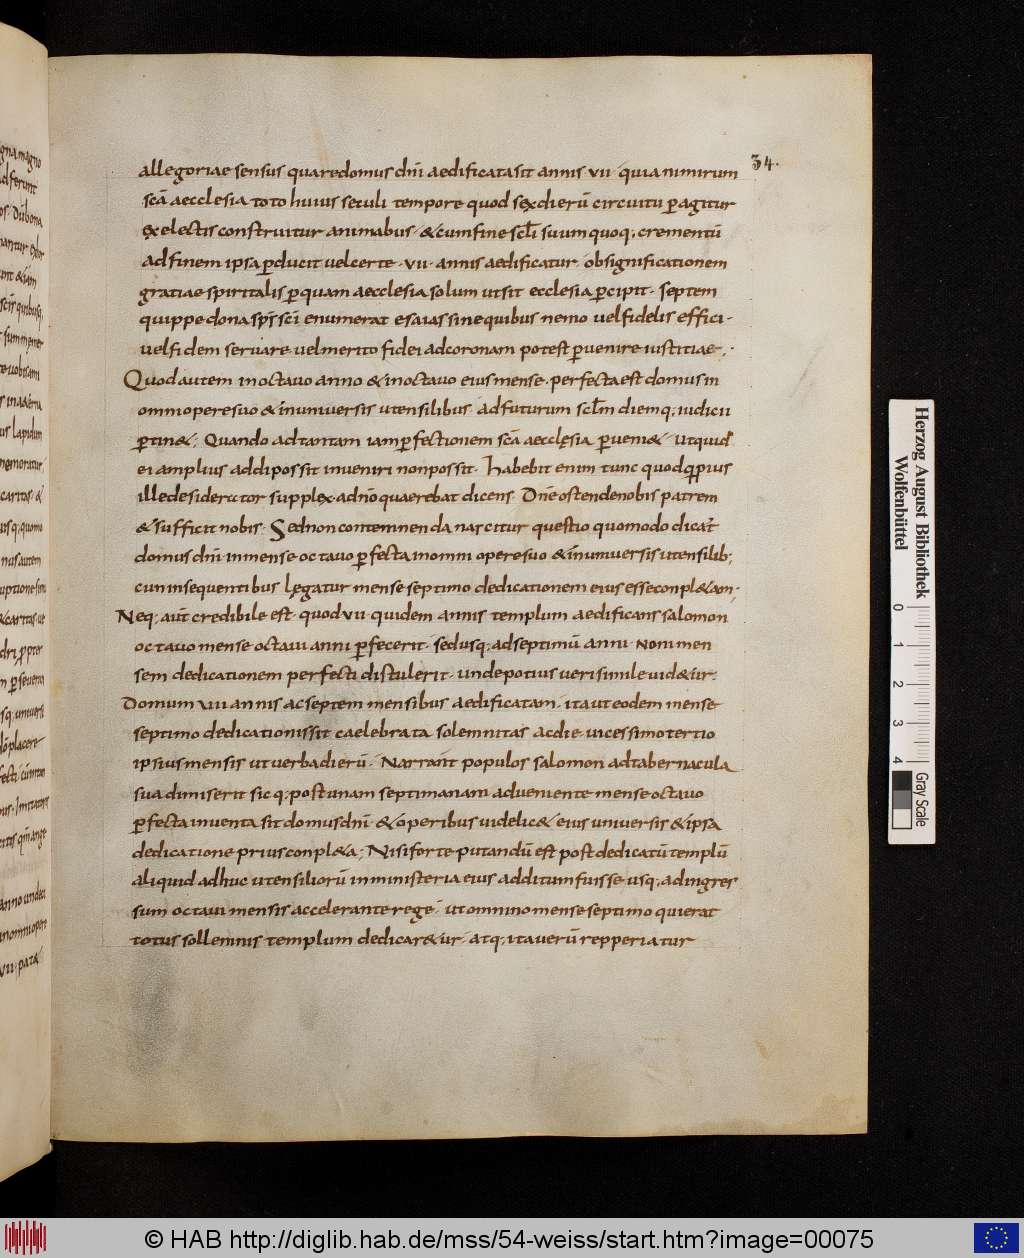 34.
allegoriae sensus quare domus dn̄i aedificata sit annis · vii · quia nimirum
scā aecclesia toto huius seculi tempore quod sex dierū circuitu ꝑagitur
ex electis construitur animabus · & cum fine scl̄i suum quoq; crementū
ad finem ipsa ꝑducit vel certe · vii · annis aedificatur · ob significationem
gratiae spiritalis ꝑ quam aecclesia solum ut sit ecclesia ꝑcipit · septem
quippe dona sp̄s sc̄i enumerat esaias sine quibus nemo vel fidelis effici ·
vel fidem servare vel merito fidei ad coronam potest ꝑvenire iustitiae; ·
Quod autem in octavo anno & in octavo eius mense · perfecta est domus in
omni opere suo & in universis utensilibus · ad futurum scl̄m diemq; iudicii
ꝑtin&; Quando ad tantam iam ꝑfectionem scā aecclęsia ꝑveni& · ut quid
ei amplius addi possit inveniri non possit · habebit enim tunc quod
ille desiderator supplex · ad dn̄o quaerebat dicens · Dn̄e ostende nobis patrem
& sufficit nobis · Sed non contemnenda nascitur questio quomodo dicat̄
domus dn̄i · in mense · octavo ꝑfecta in omni opere suo & in universis utensilib;
cum in sequentibus lęgatur mense septimo dedicationem eius esse conpl&am;
Neq; aūt credibile est · quod vii quidem annis templum aedificans salomon
octavo mense octavi anni ꝑfecerit · sed usq; ad septimū anni · noni men
sem dedicationem perfecti distulerit · unde potius verisimile vid&ur ·
Domum vii annis ac septem mensibus aedificatam · ita ut eodem mense
septimo dedicationis sit caelebrata solemnitas ac die · vicessimo tertio
ipsius mensis ut verba dierū · Narrant populos salomon ad tabernacula
sua dimiserit sicq; post unam septimanam adveniente mense octavo
ꝑfecta inventa sit domus dn̄i · & operibus videlic& eius universis & ipsa
dedicatione prius conpl&a; Nisi forte putandū est post dedicatū templū
aliquid adhuc utensiliorū in ministeria eius additum fuisse usq; ad ingres
sum octavi mensis accelerante rege · ut omnino mense septimo quierat
totus sollemnis templum dedicar&ur · atq; ita verū repperiatur
Herzog August Bibliothek
Wolfenbüttel
0 1 2 3 4
Gray Scale
© HAB http://diglib.hab.de/mss/54-weiss/start.htm?image=00075